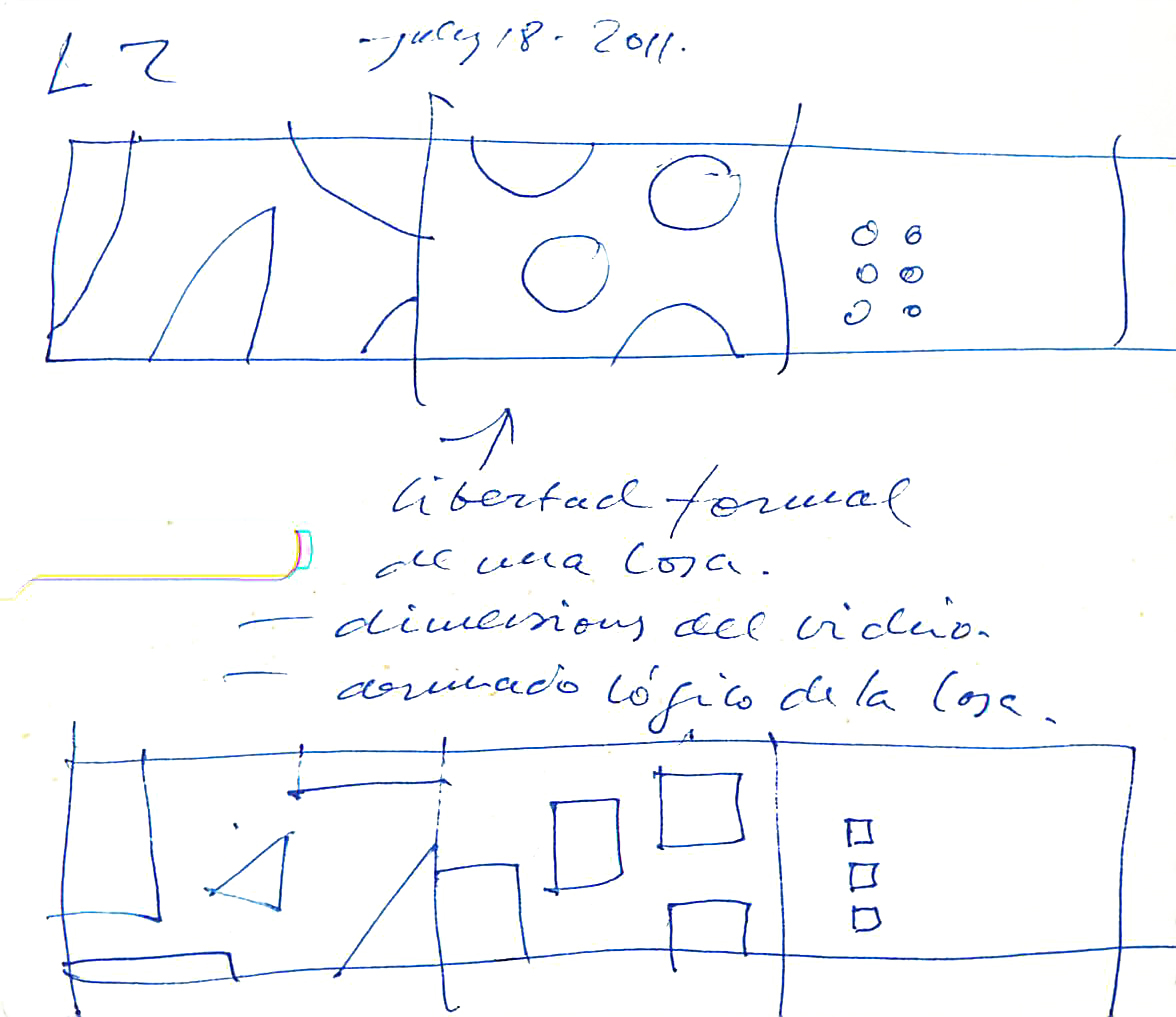 L2
- july 18 - 2011.
libertad formal
de una losa.
- dimensions del vidrio.
- armado lógico de la losa.